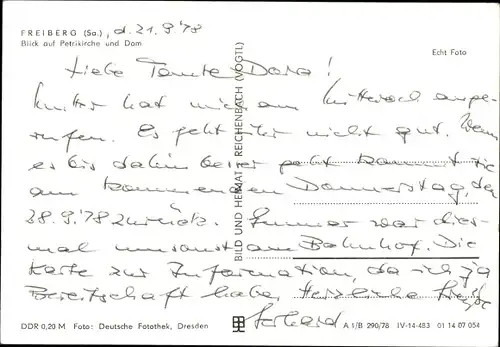 FREIBERG (Sa.), d. 21.9.'78
Blick auf Petrikirche und Dom
Echt Foto
Liebe Tante Dora!
Mutter hat mich am Mittwoch ange-
rufen. Es geht ihr nicht gut. Wenn
es bis dahin besser geht kommt sie
am kommenden Donnerstag, d.
28.9.'78 zurück. Summer war dies-
mal umsonst am Bahnhof. Die
Karte zur Information, da ich ja
Bereitschaft habe. Herzliche Grüße
Gerhard
BILD UND HEIMAT REICHENBACH (VOGTL)
DDR 0,20 M Foto: Deutsche Fotothek, Dresden
A 1/B 290/78 IV-14-483 01 14 07 054